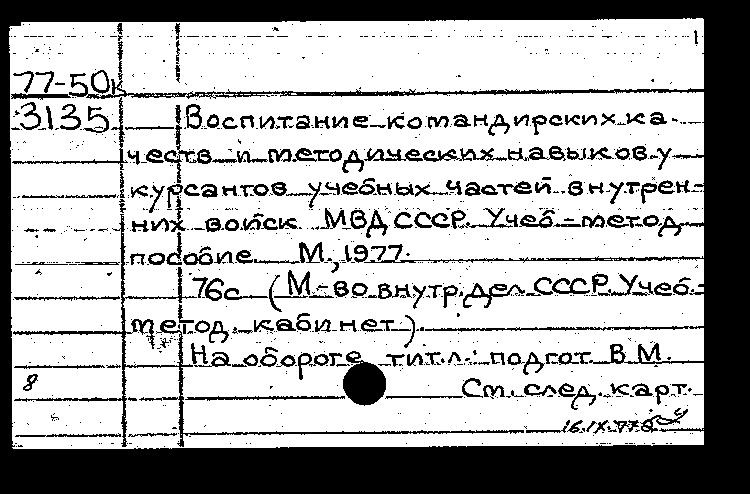 1
77-50к
3135 Воспитание командирских ка-
честв и методических навыков у
курсантов учебных частей внутрен-
них войск МВД СССР. Учеб.-метод.
пособие. М., 1977.
76с (М-во внутр. дел СССР. Учеб.-
метод. кабинет).
На обороте тит.л.: подгот. В.М.
8 См. след. карт.
16.IX.77